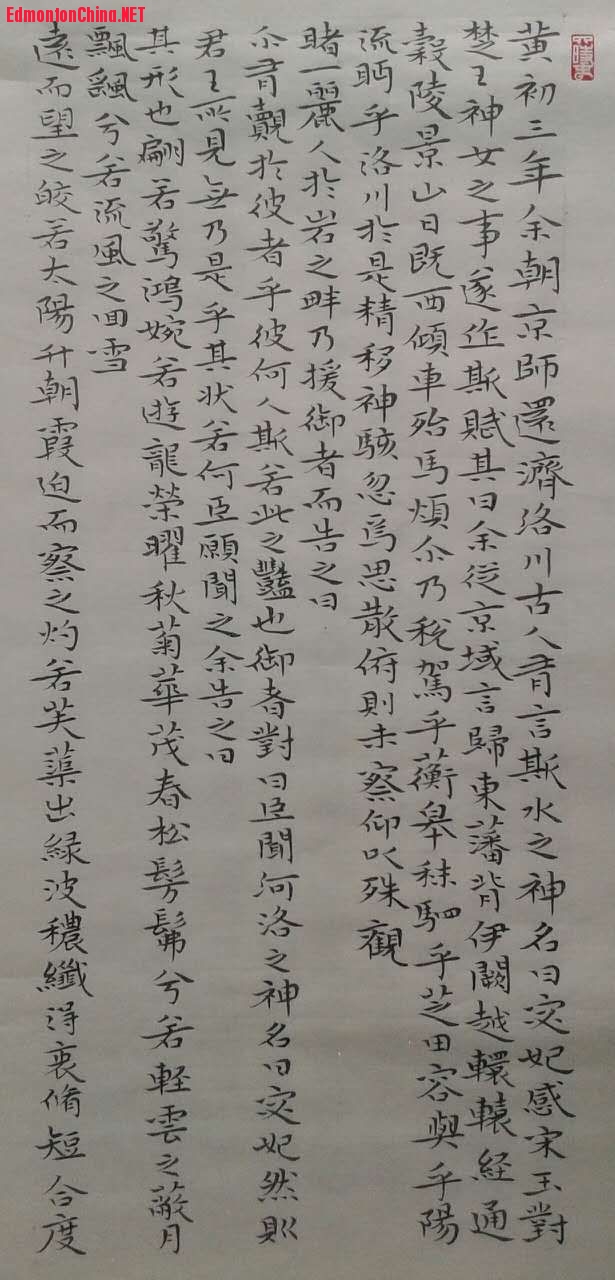 EdmontonChina.NET
黄初三年余朝京師還濟洛川古人有言斯水之神名曰宓妃感宋玉對
楚王神女之事遂作斯賦其曰余從京域言歸東藩背伊闕越轘轅経通
穀陵景山日既西傾車殆馬煩尔乃税駕乎蘅皋秣駟乎芝田容與乎陽
流眄乎洛川於是精移神駭忽焉思散俯則未察仰以殊觀
睹一麗人於岩之畔乃援御者而告之曰
尔有覿於彼者乎彼何人斯若此之豔也御者對曰臣聞河洛之神名曰宓妃然則
君王所見無乃是乎其状若何臣願聞之余告之曰
其形也翩若驚鴻婉若遊龍榮曜秋菊華茂春松髣髴兮若軽雲之蔽月
飄颻兮若流風之回雪
遠而望之皎若太陽升朝霞迫而察之灼若芙蕖出緑波穠纖得衷脩短合度